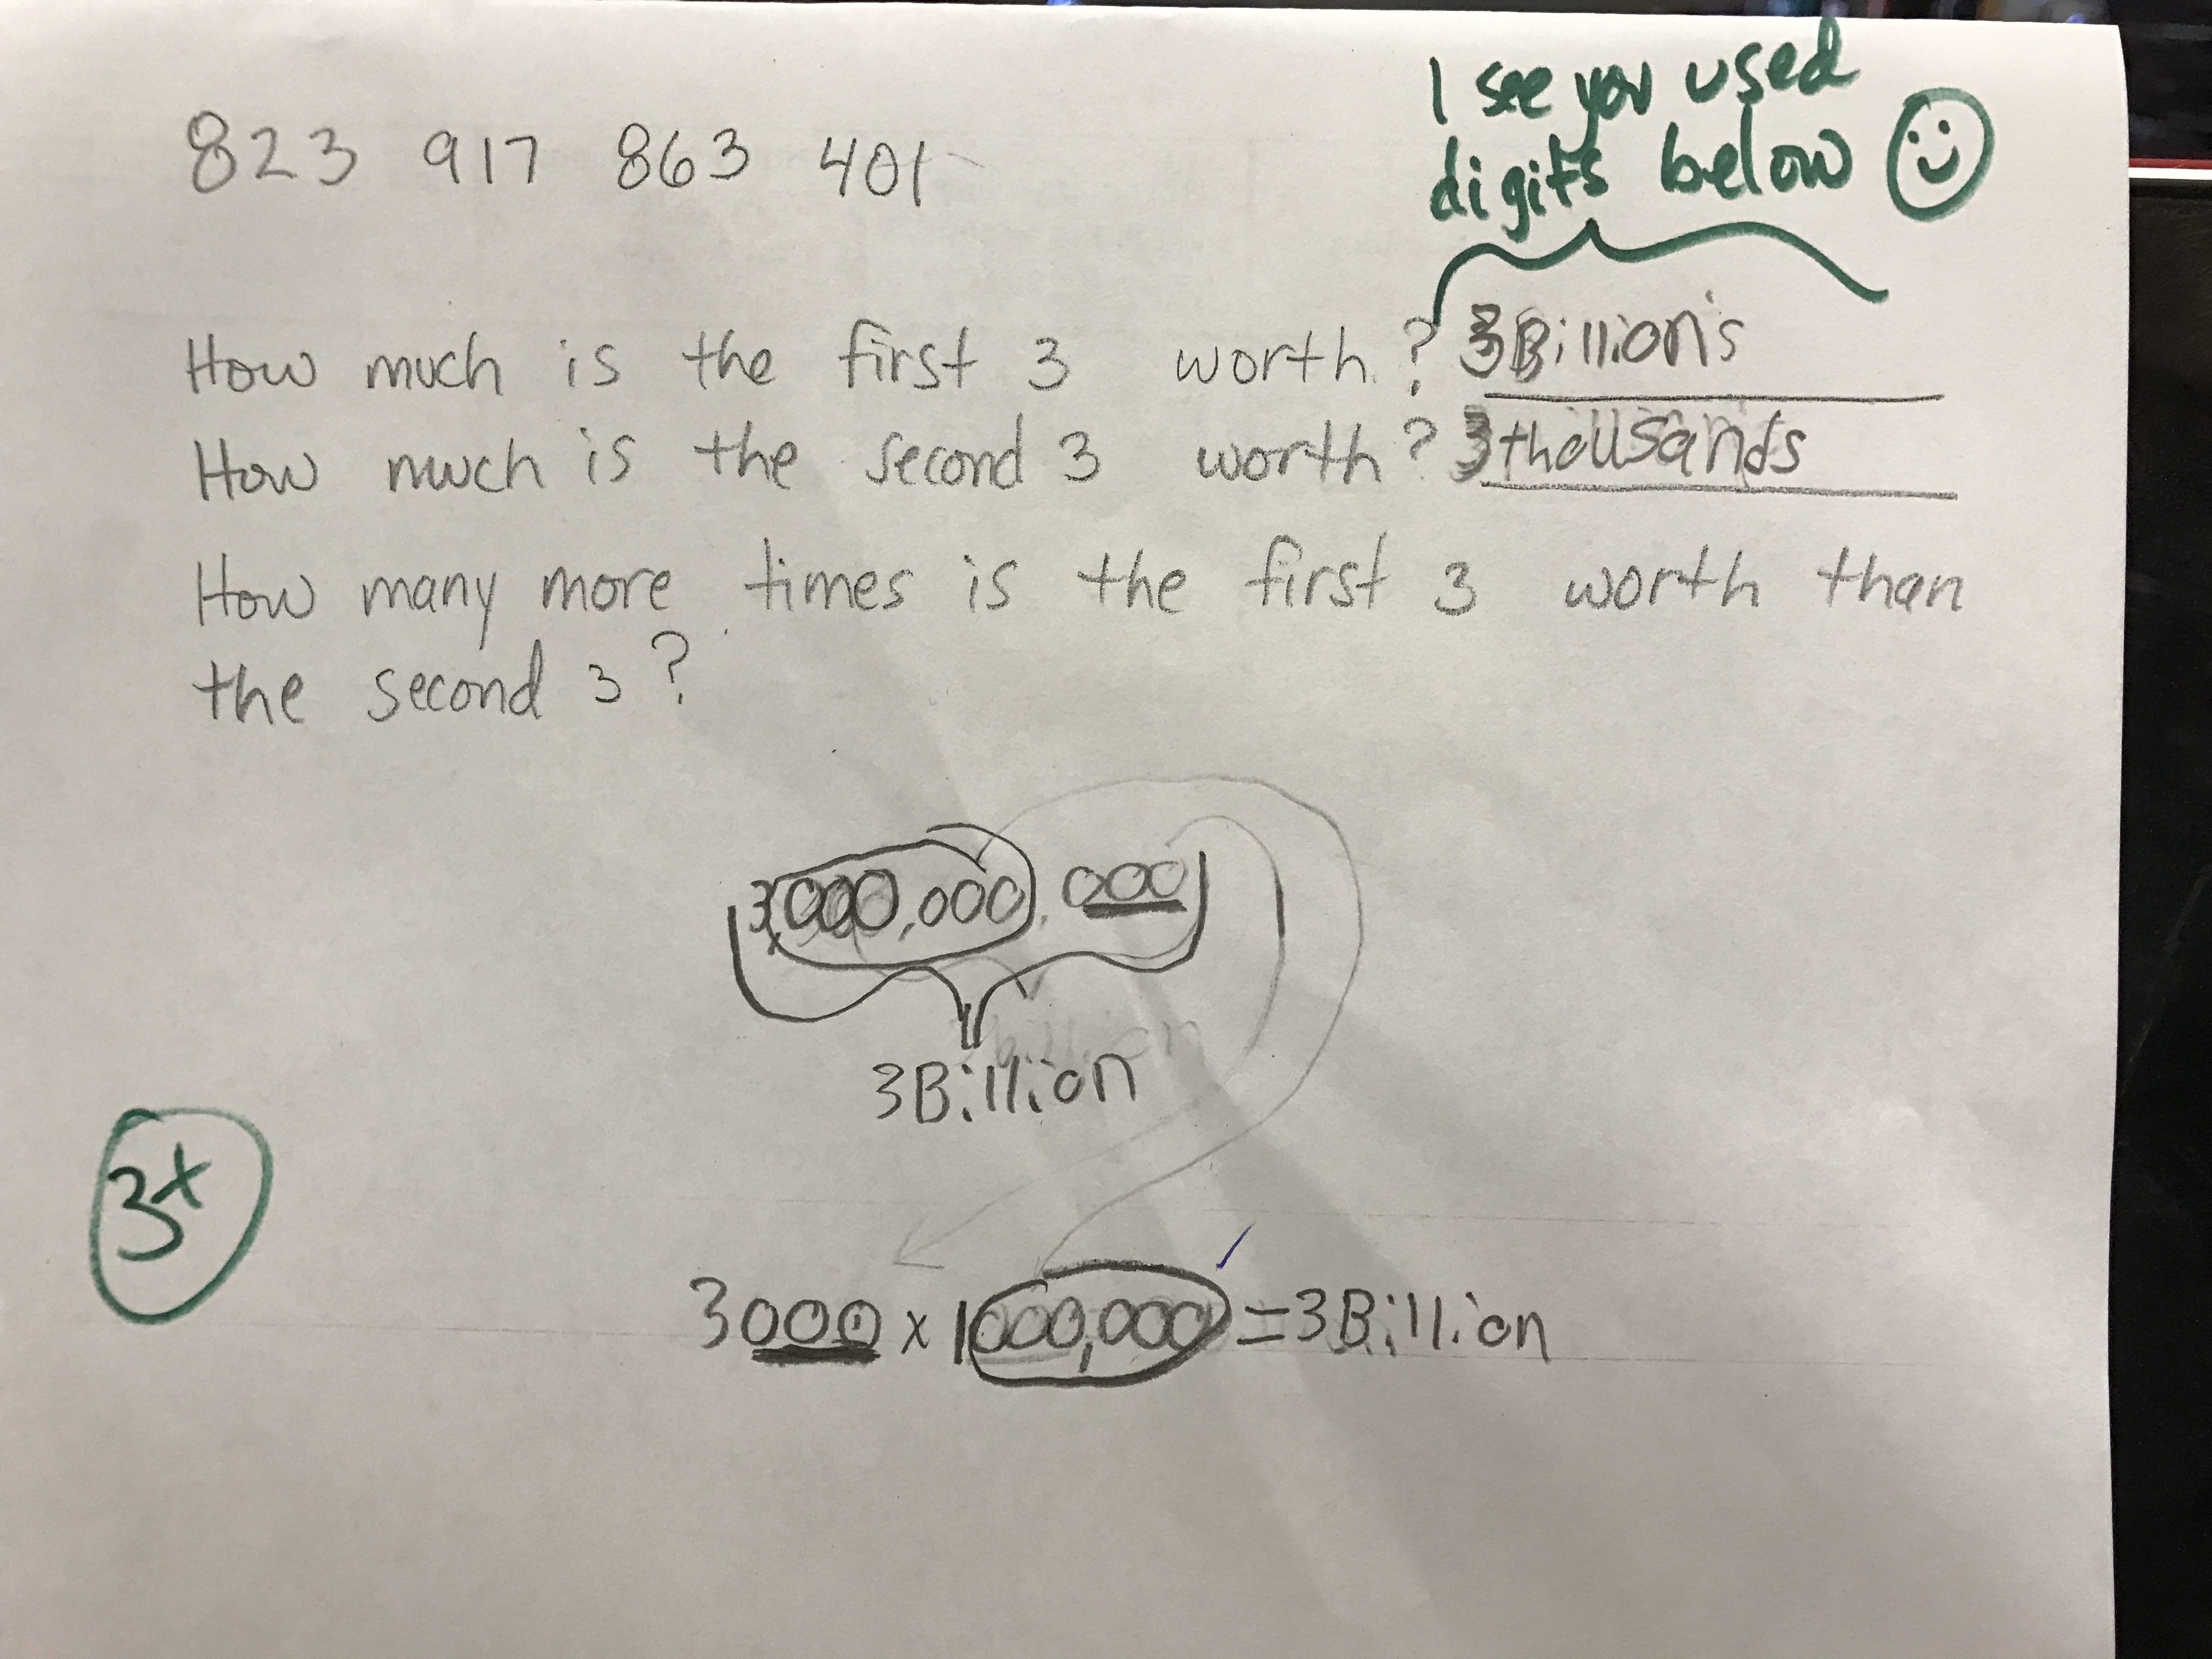 I see you used
digits below
823 917 863 401
How much is the first 3 worth? 3Billion's
How much is the second 3 worth? 3thousands
How many more times is the first 3 worth than
the second 3?
3,000,000,000
billion
3Billion
3+
3000 x 1000,000 = 3Billion